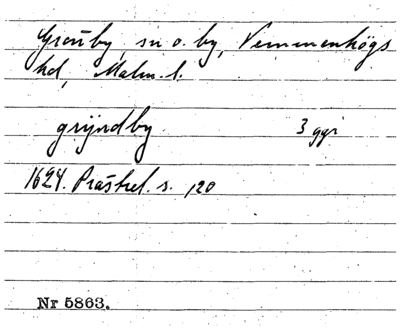 Grönby, sn o. by, Vemmenhögs
hd, Malm. l.
grijndby 3 ggr
1624. Prästrel. s. 120
Nr 5863.